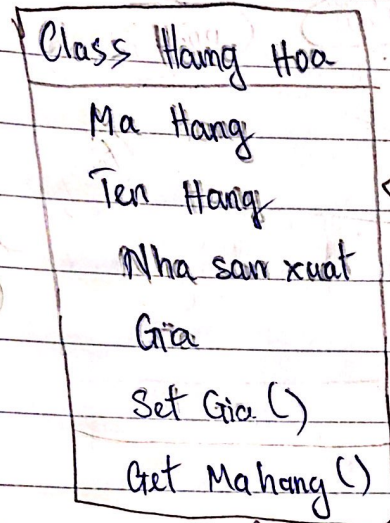 Class Hang Hoa
Ma Hang
Ten Hang
Nha san xuat
Gia
Set Gia ()
Get Mahang ()